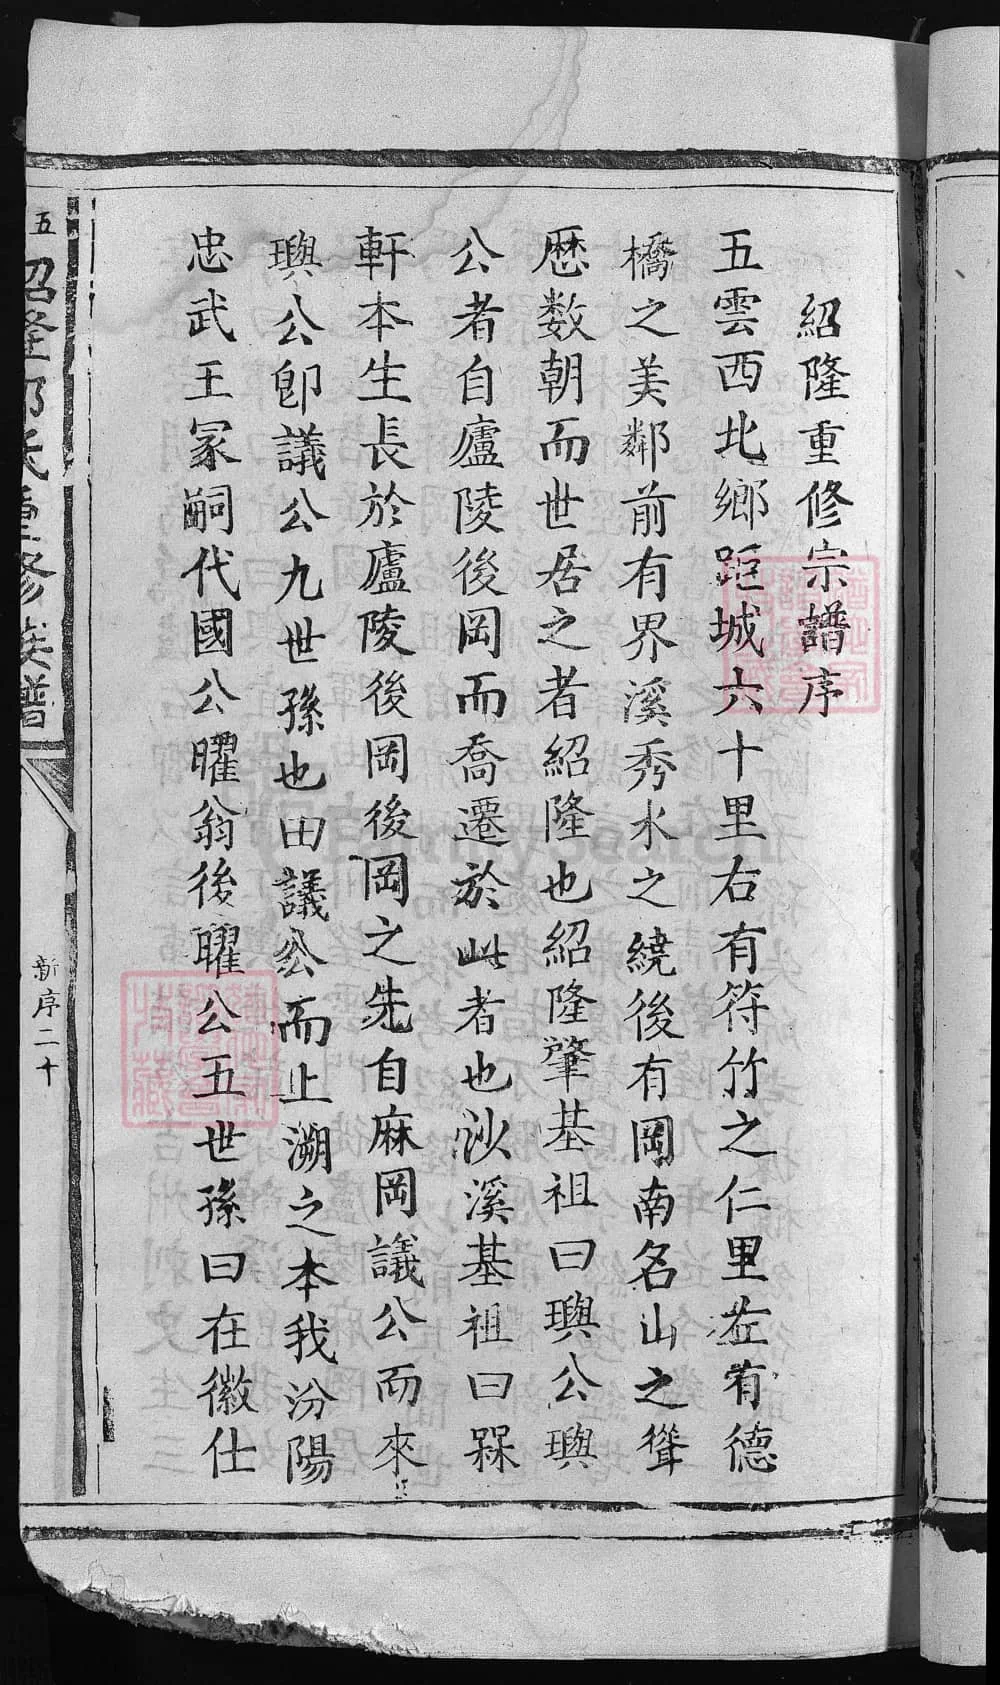 紹隆重修宗譜序
五雲西北鄉距城六十里右有符竹之仁里左有德
橋之美鄰前有界溪秀水之繞後有岡南名山之聳
歷数朝而世居之者紹隆也紹隆肇基祖曰璵公璵
公者自廬陵後岡而喬遷於此者也沙溪基祖曰槑
軒本生長於廬陵後岡後岡之先自麻岡議公而來
璵公卽議公九世孫也由議公而上溯之本我汾陽
忠武王冢嗣代國公曜翁後曜公五世孫曰在徽仕
五 紹隆郭氏重修族譜 新序二十